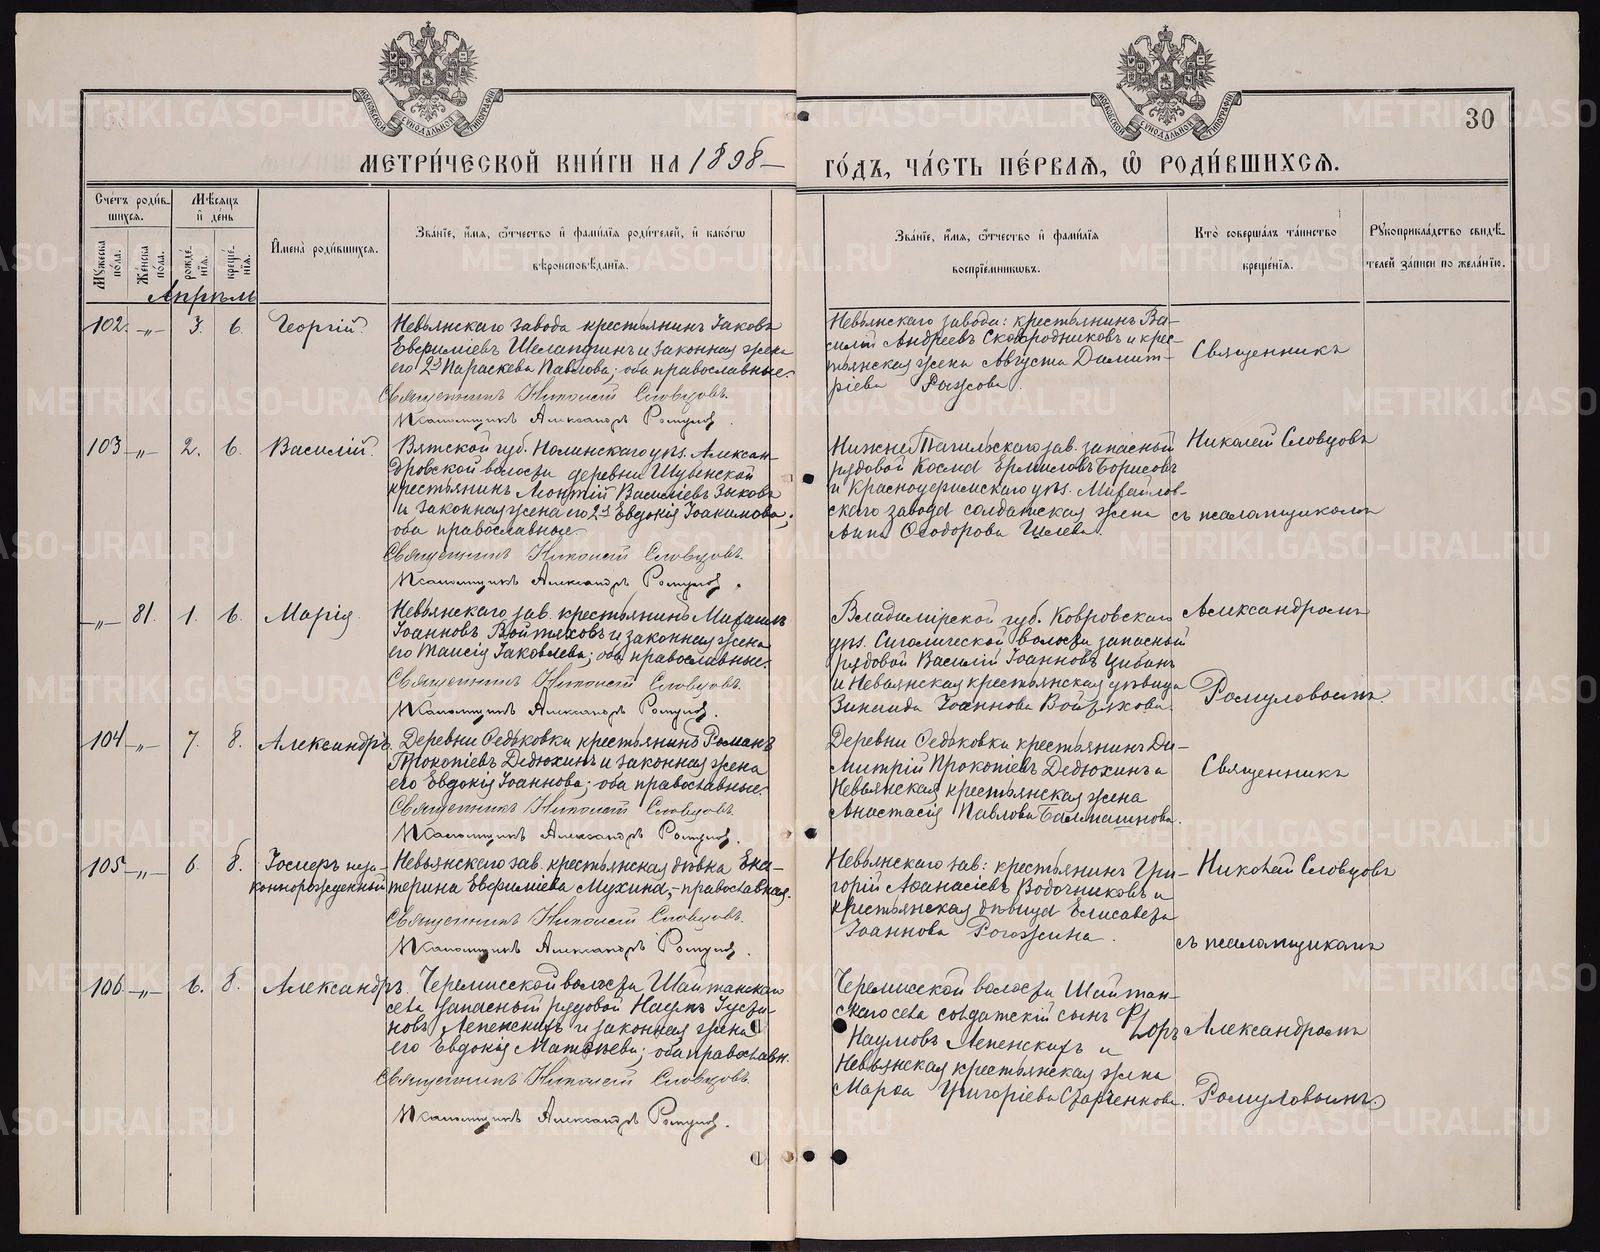 МЕТРИ́ЧЕСКОЙ КНИ́ГИ НА 1898 —
ГО́ДЪ, ЧА́СТЬ ПЕ́РВАЯ, Ѽ РОДИ́ВШИХСЯ.
30
МОСКОВСКОЙ СѴНОДАЛЬНОЙ ТИПОГРАФІИ
МОСКОВСКОЙ СѴНОДАЛЬНОЙ ТИПОГРАФІИ
Сче́тъ роди́в-
шихся.
Мѣ́сяцъ
и҆ де́нь
Му́жеска по́ла.
Же́нска по́ла.
рожде́нїѧ.
креще́нїѧ.
И҆мена̀ роди́вшихся.
Зва́нїе, и҆́мя, ѻ҆́тчество и҆ фами́лїя роди́телей, и҆ како́гѡ
вѣроисповѣ́данїя.
Зва́нїе, и҆́мя, ѻ҆́тчество и҆ фами́лїя
воспрїе́мникѡвъ.
Кто̀ соверша́лъ та́инство
креще́нїя.
Рꙋкоприкла́дство свидѣ́-
телей за́писи по жела́нїю.
Апрѣль
102. —„— 3. 6. Георгій.
Невьянскаго завода крестьянинъ Іаковъ
Евфиміевъ Шелапугинъ и законная жена
его 2я Параскева Павлова; оба православные.
Священникъ Николай Словцовъ.
Псаломщикъ Александръ Ромулов.
Невьянскаго завода: крестьянинъ Ва-
силій Андреевъ Сковородниковъ и крес-
тьянская жена Августа Димит-
ріева
Священникъ
103 —„— 2. 6. Василій.
Вятской губ. Нолинскаго уѣз. Алексан-
дровской волости деревни
крестьянинъ Леонтій Василіевъ Зыковъ
и законная жена его 2я Евдокія Іоакимова;
оба православные.
Священникъ Николай Словцовъ.
Псаломщикъ Александръ Ромулов.
Нижне Тагильскаго зав. запасный
рядовой Косма Ермиловъ Борисовъ
и Красноуфимскаго уѣз. Михайлов-
скаго завода солдатская жена
Анна Ѳеодорова
Николай Словцовъ
съ псаломщикомъ
—„— 81. 1. 6. Марія
Невьянскаго зав. крестьянинъ Михаилъ
Іоанновъ Войтяховъ и законная жена
его Таисія Іаковлева; оба православные.
Священникъ Николай Словцовъ.
Псаломщикъ Александръ Ромулов.
Владимірской губ. Ковровскаго
уѣз. волости запасный
рядовой Василій Іоанновъ
и Невьянская крестьянская дѣвица
Зинаида Іоаннова Войтяхова.
Александромъ
Ромуловымъ.
104 —„— 7. 8. Александръ.
Деревни Ѳедьковки крестьянинъ Романъ
Прокопіевъ Дедюхинъ и законная жена
его Евдокія Іоаннова; оба православные.
Священникъ Николай Словцовъ.
Псаломщикъ Александръ Ромулов.
Деревни Ѳедьковки крестьянинъ Ди-
митрій Прокопіевъ Дедюхинъ и
Невьянская крестьянская жена
Анастасія Павлова Балмашнова.
Священникъ
105 —„— 6. 8. Іосифъ неза-
коннорожденный
Невьянскаго зав. крестьянская дѣвка Ека-
терина Евфиміева Мухина, - православная.
Священникъ Николай Словцовъ.
Псаломщикъ Александръ Ромулов.
Невьянскаго зав: крестьянинъ Гри-
горій Аѳанасіевъ Водочниковъ и
крестьянская дѣвица Елисавета
Іоаннова Рогожина.
Николай Словцовъ
съ псаломщикомъ
106 —„— 6. 8. Александръ.
Черемисской волости Шайтанскаго
села запасный рядовой Наумъ Густи-
новъ Лепенскихъ и законная жена
его Евдокія Матѳіева; оба православн.
Священникъ Николай Словцовъ.
Псаломщикъ Александръ Ромулов.
Черемисской волости Шайтан-
скаго села солдатскій сынъ Флоръ
Наумовъ Лепенскихъ и
Невьянская крестьянская жена
Марѳа Григоріева Старченкова.
Александромъ
Ромуловымъ.